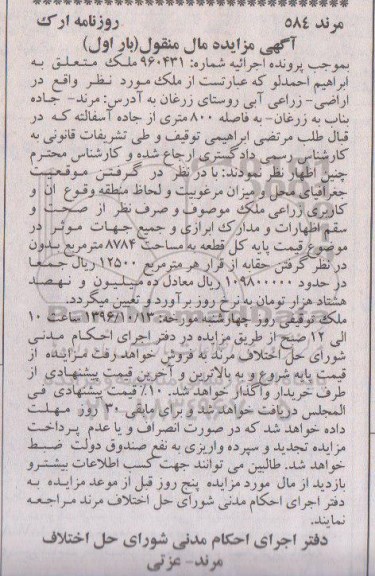 مرند ٥٨٤ روزنامه ارک
آگهی مزایده مال منقول(بار اول)
بموجب پرونده اجرائیه شماره: ٩٦٠٤٣١ ملک متعلق به
ابراهیم احمدلو که عبارتست از ملک مورد نظر واقع در
اراضی- زراعی آبی روستای زرغان به آدرس: مرند- جاده
بناب به زرغان- به فاصله ٨٠٠ متری از جاده آسفالته که در
قبال طلب مرتضی ابراهیمی توقیف و طی تشریفات قانونی به
کارشناس رسمی دادگستری ارجاع شده و کارشناس محترم
چنین اظهار نظر نمودند: با در نظر در گرفتن موقعیت
جغرافیای محل و میزان مرغوبیت و لحاظ منطقه وقوع آن و
کاربری زراعی ملک موصوف و صرف نظر از صحت و
سقم اظهارات و مدارک ابرازی و جمیع جهات موثر در
موضوع قیمت پایه کل قطعه به مساحت ٨٧٨٤ مترمربع بدون
در نظر گرفتن حقابه از قرار هر مترمربع ١٢٥٠٠ ریال جمعا
در حدود ١٠٩٨٠٠٠٠٠ ریال معادل ده میلیون و نهصد
هشتاد هزار تومان به نرخ روز برآورد و تعیین میگردد.
ملک توقیفی روز چهارشنبه مورخه: ١٣٩٦/١٠/١٣ ساعت ١٠
الی ١٢ صبح از طریق مزایده در دفتر اجرای احکام مدنی
شورای حل اختلاف مرند به فروش خواهد رفت مزایده از
قیمت پایه شروع و به بالاترین و آخرین قیمت پیشنهادی از
طرف خریدار واگذار خواهد شد. ١٠٪ قیمت پیشنهادی فی
المجلس دریافت خواهد شد و برای مابقی ٣٠ روز مهلت
داده خواهد شد که در صورت انصراف و یا عدم پرداخت
مزایده تجدید و سپرده واریزی به نفع صندوق دولت ضبط
خواهد شد. طالبین می توانند جهت کسب اطلاعات بیشتر و
بازدید از مال مورد مزایده پنج روز قبل از موعد مزایده به
دفتر اجرای احکام مدنی شورای حل اختلاف مرند مراجعه
نمایند.
دفتر اجرای احکام مدنی شورای حل اختلاف
مرند- عزتی